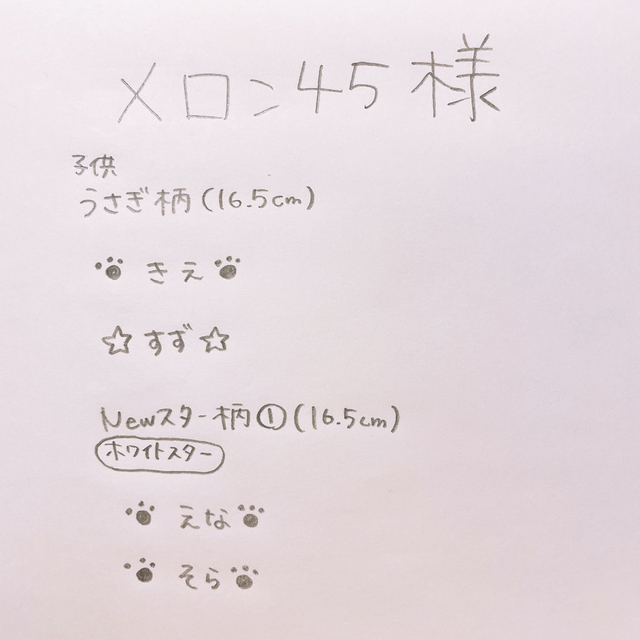 メロン45様
子供
うさぎ柄(16.5cm)
きえ
☆すず☆
Newスター柄①(16.5cm)
ホワイトスター
えな
そら